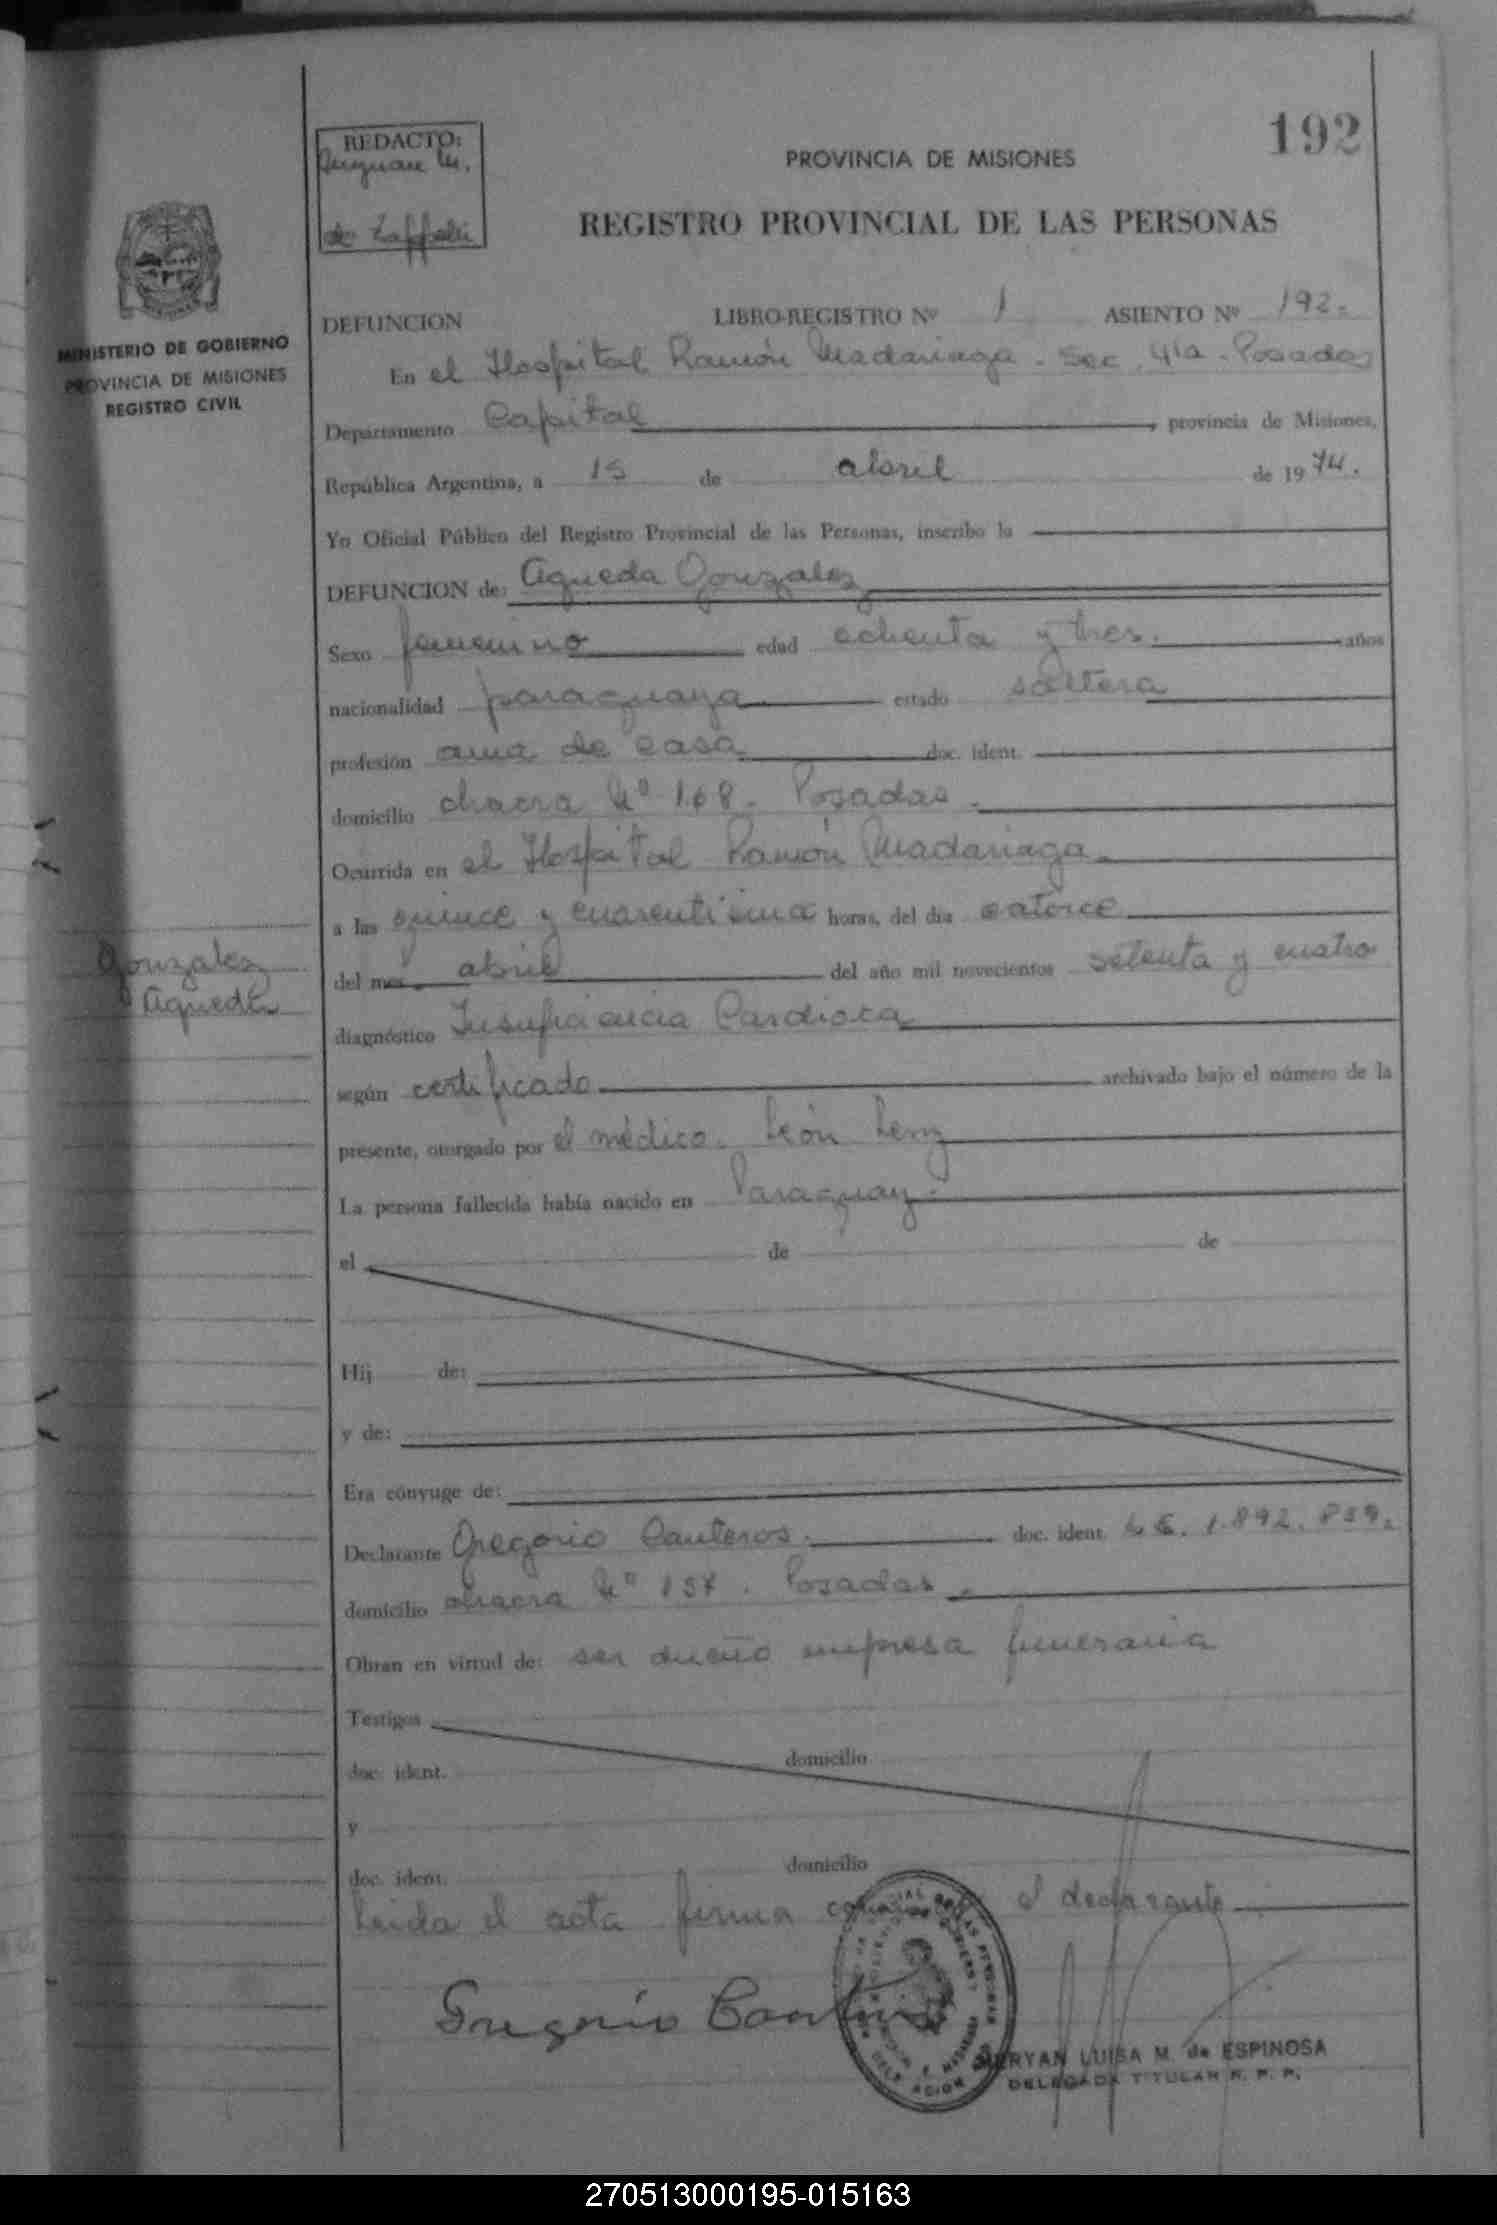 192
REDACTO:
PROVINCIA DE MISIONES
REGISTRO PROVINCIAL DE LAS PERSONAS
MINISTERIO DE GOBIERNO
PROVINCIA DE MISIONES
REGISTRO CIVIL
DEFUNCION LIBRO-REGISTRO Nº 1 ASIENTO Nº 192.
En el Hospital Ramón Madariaga - Sec. 4ta - Posadas
Departamento Capital, provincia de Misiones,
República Argentina, a 15 de abril de 1974.
Yo Oficial Público del Registro Provincial de las Personas, inscribo la
DEFUNCION de: Agueda Gonzalez
Sexo femenino edad ochenta y tres. años
nacionalidad paraguaya estado soltera
profesión ama de casa doc. ident.
domicilio chacra Nº 168. Posadas.
Ocurrida en el Hospital Ramón Madariaga
a las quince y cuarentisima horas, del dia catorce
Gonzalez
Agueda
del mes abril del año mil novecientos setenta y cuatro
diagnóstico Insuficiencia Cardiaca
según certificado archivado bajo el número de la
presente, otorgado por el médico. León
La persona fallecida había nacido en Paraguay.
el de de
Hij de:
y de:
Era cónyuge de:
Declarante Gregorio Canteros. doc. ident. L E. 1.892.859.
domicilio chacra Nº 157. Posadas.
Obran en virtud de: ser dueño empresa funeraria
Testigos
doc. ident. domicilio
y
doc. ident. domicilio
Leida el acta firma el declarante
Gregorio
LUISA M. de ESPINOSA
DELEGADA TITULAR R. P. P.
270513000195-015163